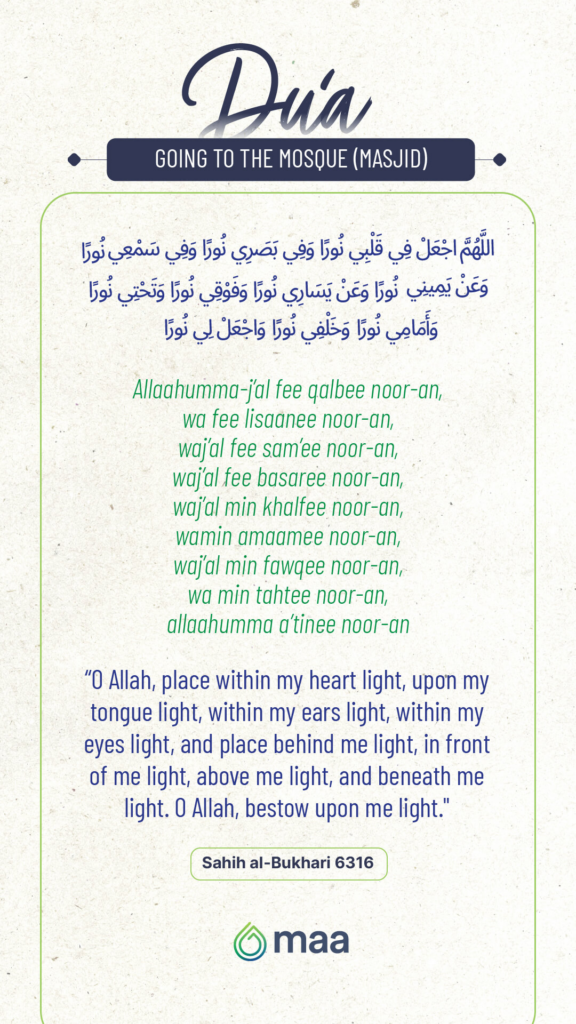 Du'a
GOING TO THE MOSQUE (MASJID)
اللَّهُمَّ اجْعَلْ فِي قَلْبِي نُورًا وَفِي بَصَرِي نُورًا وَفِي سَمْعِي نُورًا
وَعَنْ يَمِينِي نُورًا وَعَنْ يَسَارِي نُورًا وَفَوْقِي نُورًا وَتَحْتِي نُورًا
وَأَمَامِي نُورًا وَخَلْفِي نُورًا وَاجْعَلْ لِي نُورًا
Allaahumma-j’al fee qalbee noor-an,
wa fee lisaanee noor-an,
waj’al fee sam’ee noor-an,
waj’al fee basaree noor-an,
waj’al min khalfee noor-an,
wamin amaamee noor-an,
waj’al min fawqee noor-an,
wa min tahtee noor-an,
allaahumma a’tinee noor-an
“O Allah, place within my heart light, upon my
tongue light, within my ears light, within my
eyes light, and place behind me light, in front
of me light, above me light, and beneath me
light. O Allah, bestow upon me light."
Sahih al-Bukhari 6316
maa